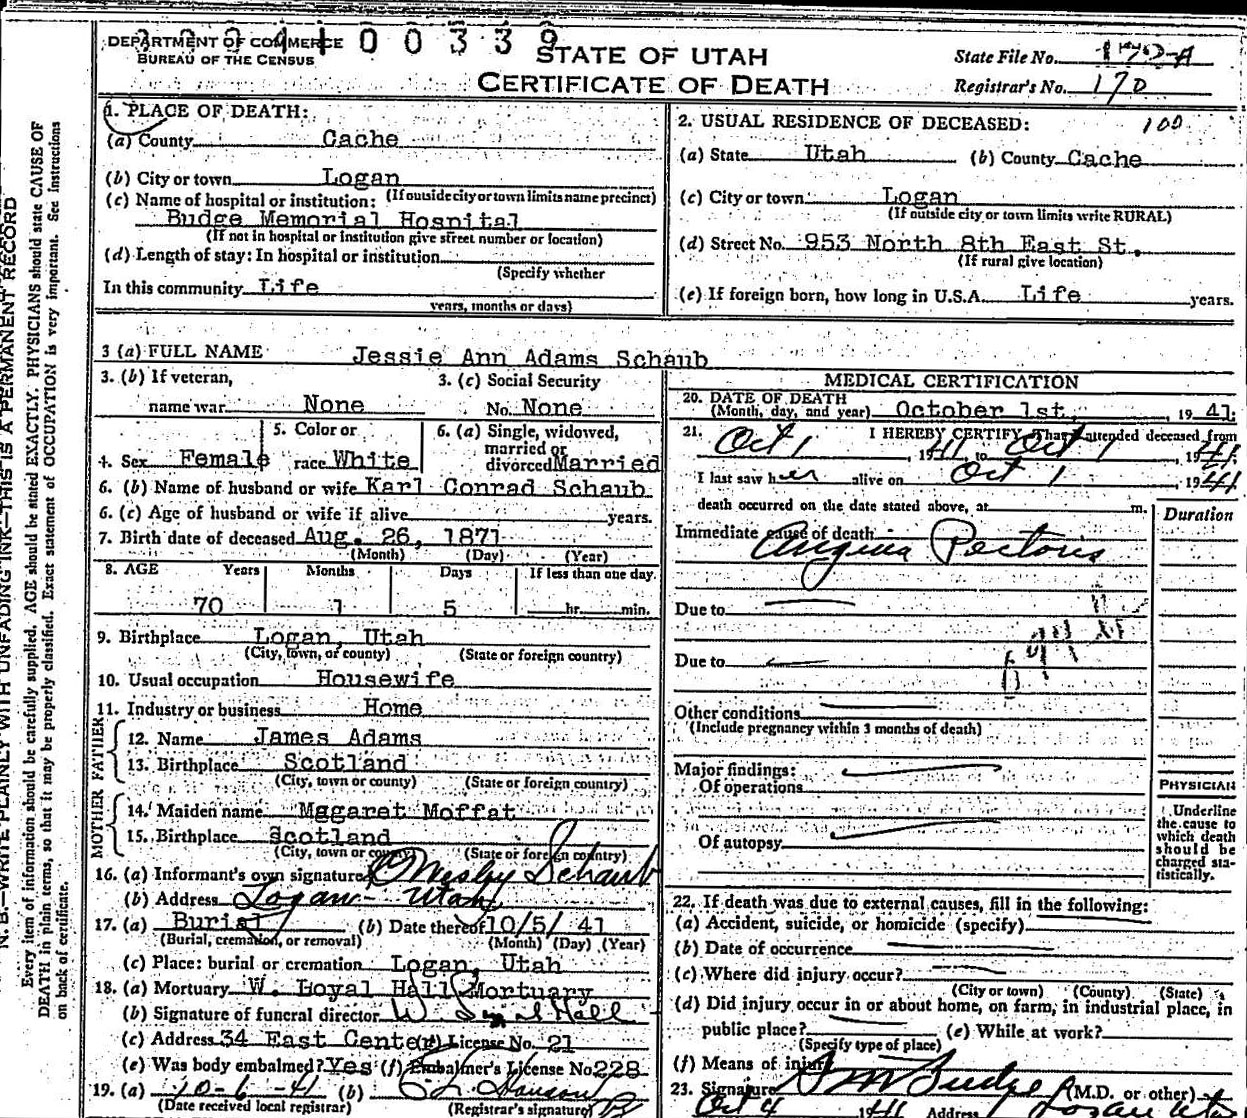 DEPARTMENT OF COMMERCE
BUREAU OF THE CENSUS
0 0 3 3 9
STATE OF UTAH
CERTIFICATE OF DEATH
State File No. 170-A
Registrar's No. 170
1. PLACE OF DEATH:
(a) County Cache
(b) City or town Logan
(If outside city or town limits name precinct)
(c) Name of hospital or institution:
Budge Memorial Hospital
(If not in hospital or institution give street number or location)
(d) Length of stay: In hospital or institution
(Specify whether
In this community Life
years, months or days)
2. USUAL RESIDENCE OF DECEASED: 100
(a) State Utah (b) County Cache
(c) City or town Logan
(If outside city or town limits write RURAL)
(d) Street No. 953 North 8th East St.
(If rural give location)
(e) If foreign born, how long in U.S.A. Life years.
3 (a) FULL NAME Jessie Ann Adams Schaub
3. (b) If veteran,
name war None
3. (c) Social Security
No. None
4. Sex Female
5. Color or
race White
6. (a) Single, widowed,
married or
divorced Married
6. (b) Name of husband or wife Karl Conrad Schaub
6. (c) Age of husband or wife if alive years.
7. Birth date of deceased Aug. 26, 1871
(Month) (Day) (Year)
8. AGE Years Months Days If less than one day
70 1 5 hr. min.
9. Birthplace Logan, Utah
(City, town, or county) (State or foreign country)
10. Usual occupation Housewife
11. Industry or business Home
FATHER
12. Name James Adams
13. Birthplace Scotland
(City, town or county) (State or foreign country)
MOTHER
14. Maiden name Mggaret Moffat
15. Birthplace Scotland
(City, town or county) (State or foreign country)
16. (a) Informant's own signature Wesley Schaub
(b) Address Logan - Utah
17. (a) Burial (b) Date thereof 10/5/ 41
(Burial, cremation, or removal) (Month) (Day) (Year)
(c) Place: burial or cremation Logan, Utah
18. (a) Mortuary W. Loyal Hall Mortuary
(b) Signature of funeral director W. Loyal Hall
(c) Address 34 East Center License No. 21
(e) Was body embalmed? Yes (f) Embalmer's License No. 228
19. (a) 10-6-41 (b)
(Date received local registrar) (Registrar's signature)
MEDICAL CERTIFICATION
20. DATE OF DEATH
(Month, day, and year) October 1st, , 19 41
21. I HEREBY CERTIFY That I attended deceased from
Oct 1, 1941, to Oct 1, 1941
I last saw her alive on Oct 1, 1941
death occurred on the date stated above, at m.
Duration
Immediate cause of death
Angina Pectoris
Due to
Due to
Other conditions
(Include pregnancy within 3 months of death)
Major findings:
Of operations
Of autopsy
PHYSICIAN
Underline
the cause to
which death
should be
charged sta-
tistically.
22. If death was due to external causes, fill in the following:
(a) Accident, suicide, or homicide (specify)
(b) Date of occurrence
(c) Where did injury occur?
(City or town) (County) (State)
(d) Did injury occur in or about home, on farm, in industrial place, in
public place? (e) While at work?
(Specify type of place)
(f) Means of injury
23. Signature Budge (M.D. or other)
Oct 4 1941 Address Logan
N. B.—WRITE PLAINLY WITH UNFADING INK—THIS IS A PERMANENT RECORD
Every item of information should be carefully supplied. AGE should be stated EXACTLY. PHYSICIANS should state CAUSE OF
DEATH in plain terms, so that it may be properly classified. Exact statement of OCCUPATION is very important. See instructions
on back of certificate.